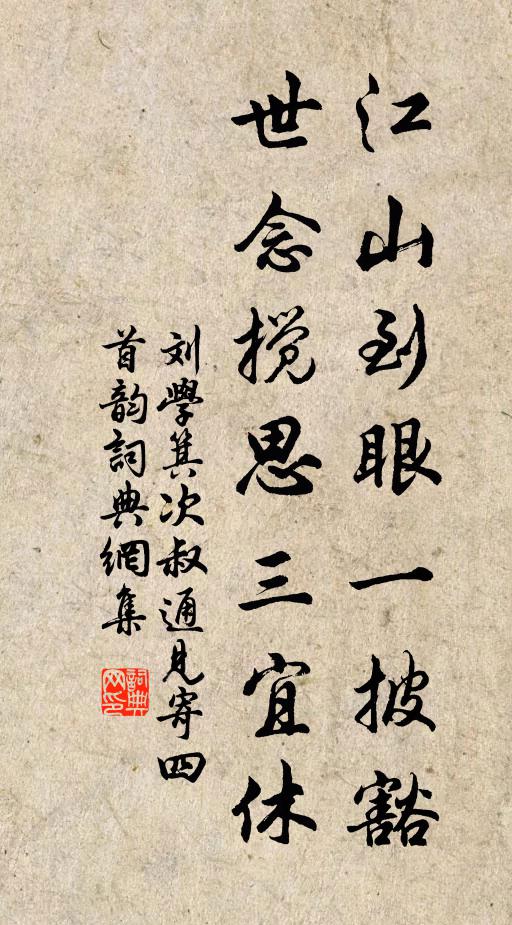 江山到眼一披豁
世念搅思三宜休
刘学箕次叔通见寄四
首韵詞典網集
詞典网印